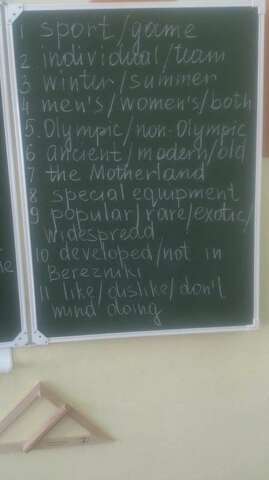 1 sport/game
2 individual/team
3 winter/summer
4 men's/women's/both
5. Olympic/non-Olympic
6 ancient/modern/old
7 the Motherland
8 special equipment
9 popular/rare/exotic/
widespread
10 developed/not in
Berezniki
11 like/dislike/don't
mind doing